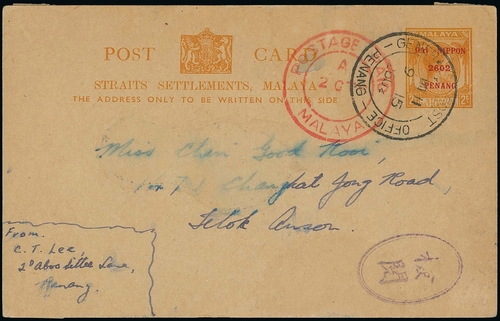 POST CARD
STRAITS SETTLEMENTS, MALAYA
THE ADDRESS ONLY TO BE WRITTEN ON THIS SIDE
MALAYA
DAI NIPPON
2602
PENANG
POSTAGE
A
MALAYA
GENERAL POST OFFICE PENANG
Miss Chan Good
Changkat Jong Road,
Telok Anson.
From.
C. T. Lee,
Lane,
Penang.